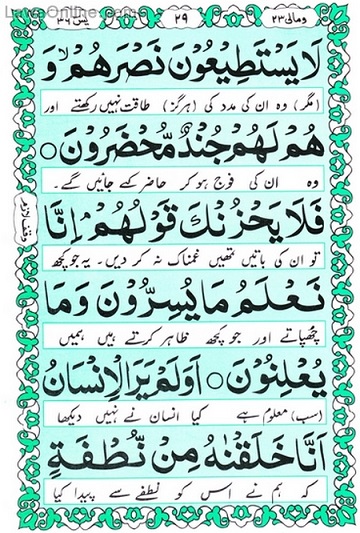 ومالی ٢٣ ٢٩ یٰسٓ ٣٦
لَا يَسْتَطِيْعُوْنَ نَصْرَهُمْ ۙ وَ
(مگر) وہ ان کی مدد کی (ہرگز) طاقت نہیں رکھتے اور
هُمْ لَهُمْ جُنْدٌ مُّحْضَرُوْنَ ○
وہ ان کی فوج ہو کر حاضر کئے جائیں گے۔
فَلَا يَحْزُنْكَ قَوْلُهُمْ ۘ اِنَّا
تو ان کی باتیں تمھیں غمناک نہ کر دیں۔ یہ جو کچھ
نَعْلَمُ مَا يُسِرُّوْنَ وَمَا
چھپاتے اور جو کچھ ظاہر کرتے ہیں ہمیں
يُعْلِنُوْنَ ○ اَوَلَمْ يَرَ الْاِنْسَانُ
(سب) معلوم ہے کیا انسان نے نہیں دیکھا
اَنَّا خَلَقْنٰهُ مِنْ نُّطْفَةٍ
کہ ہم نے اس کو نطفے سے پیدا کیا